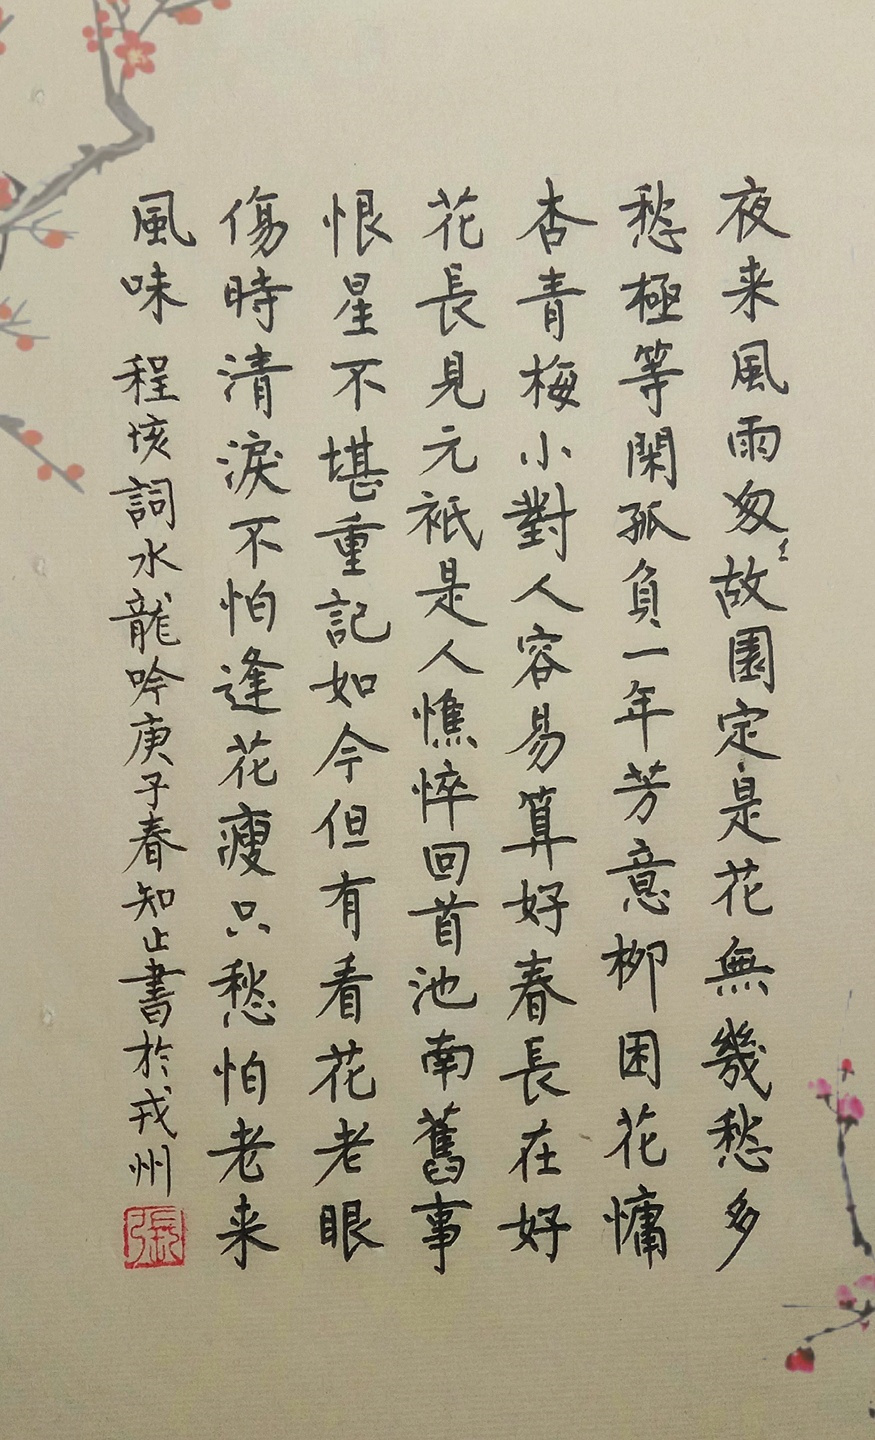 夜来風雨匆〻故園定是花無幾愁多
愁極等閑孤負一年芳意柳困花慵
杏青梅小對人容易算好春長在好
花長見元衹是人憔悴回首池南舊事
恨星不堪重記如今但有看花老眼
傷時清淚不怕逢花瘦只愁怕老来
風味 程垓詞水龍吟庚子春知止書於戎州
張